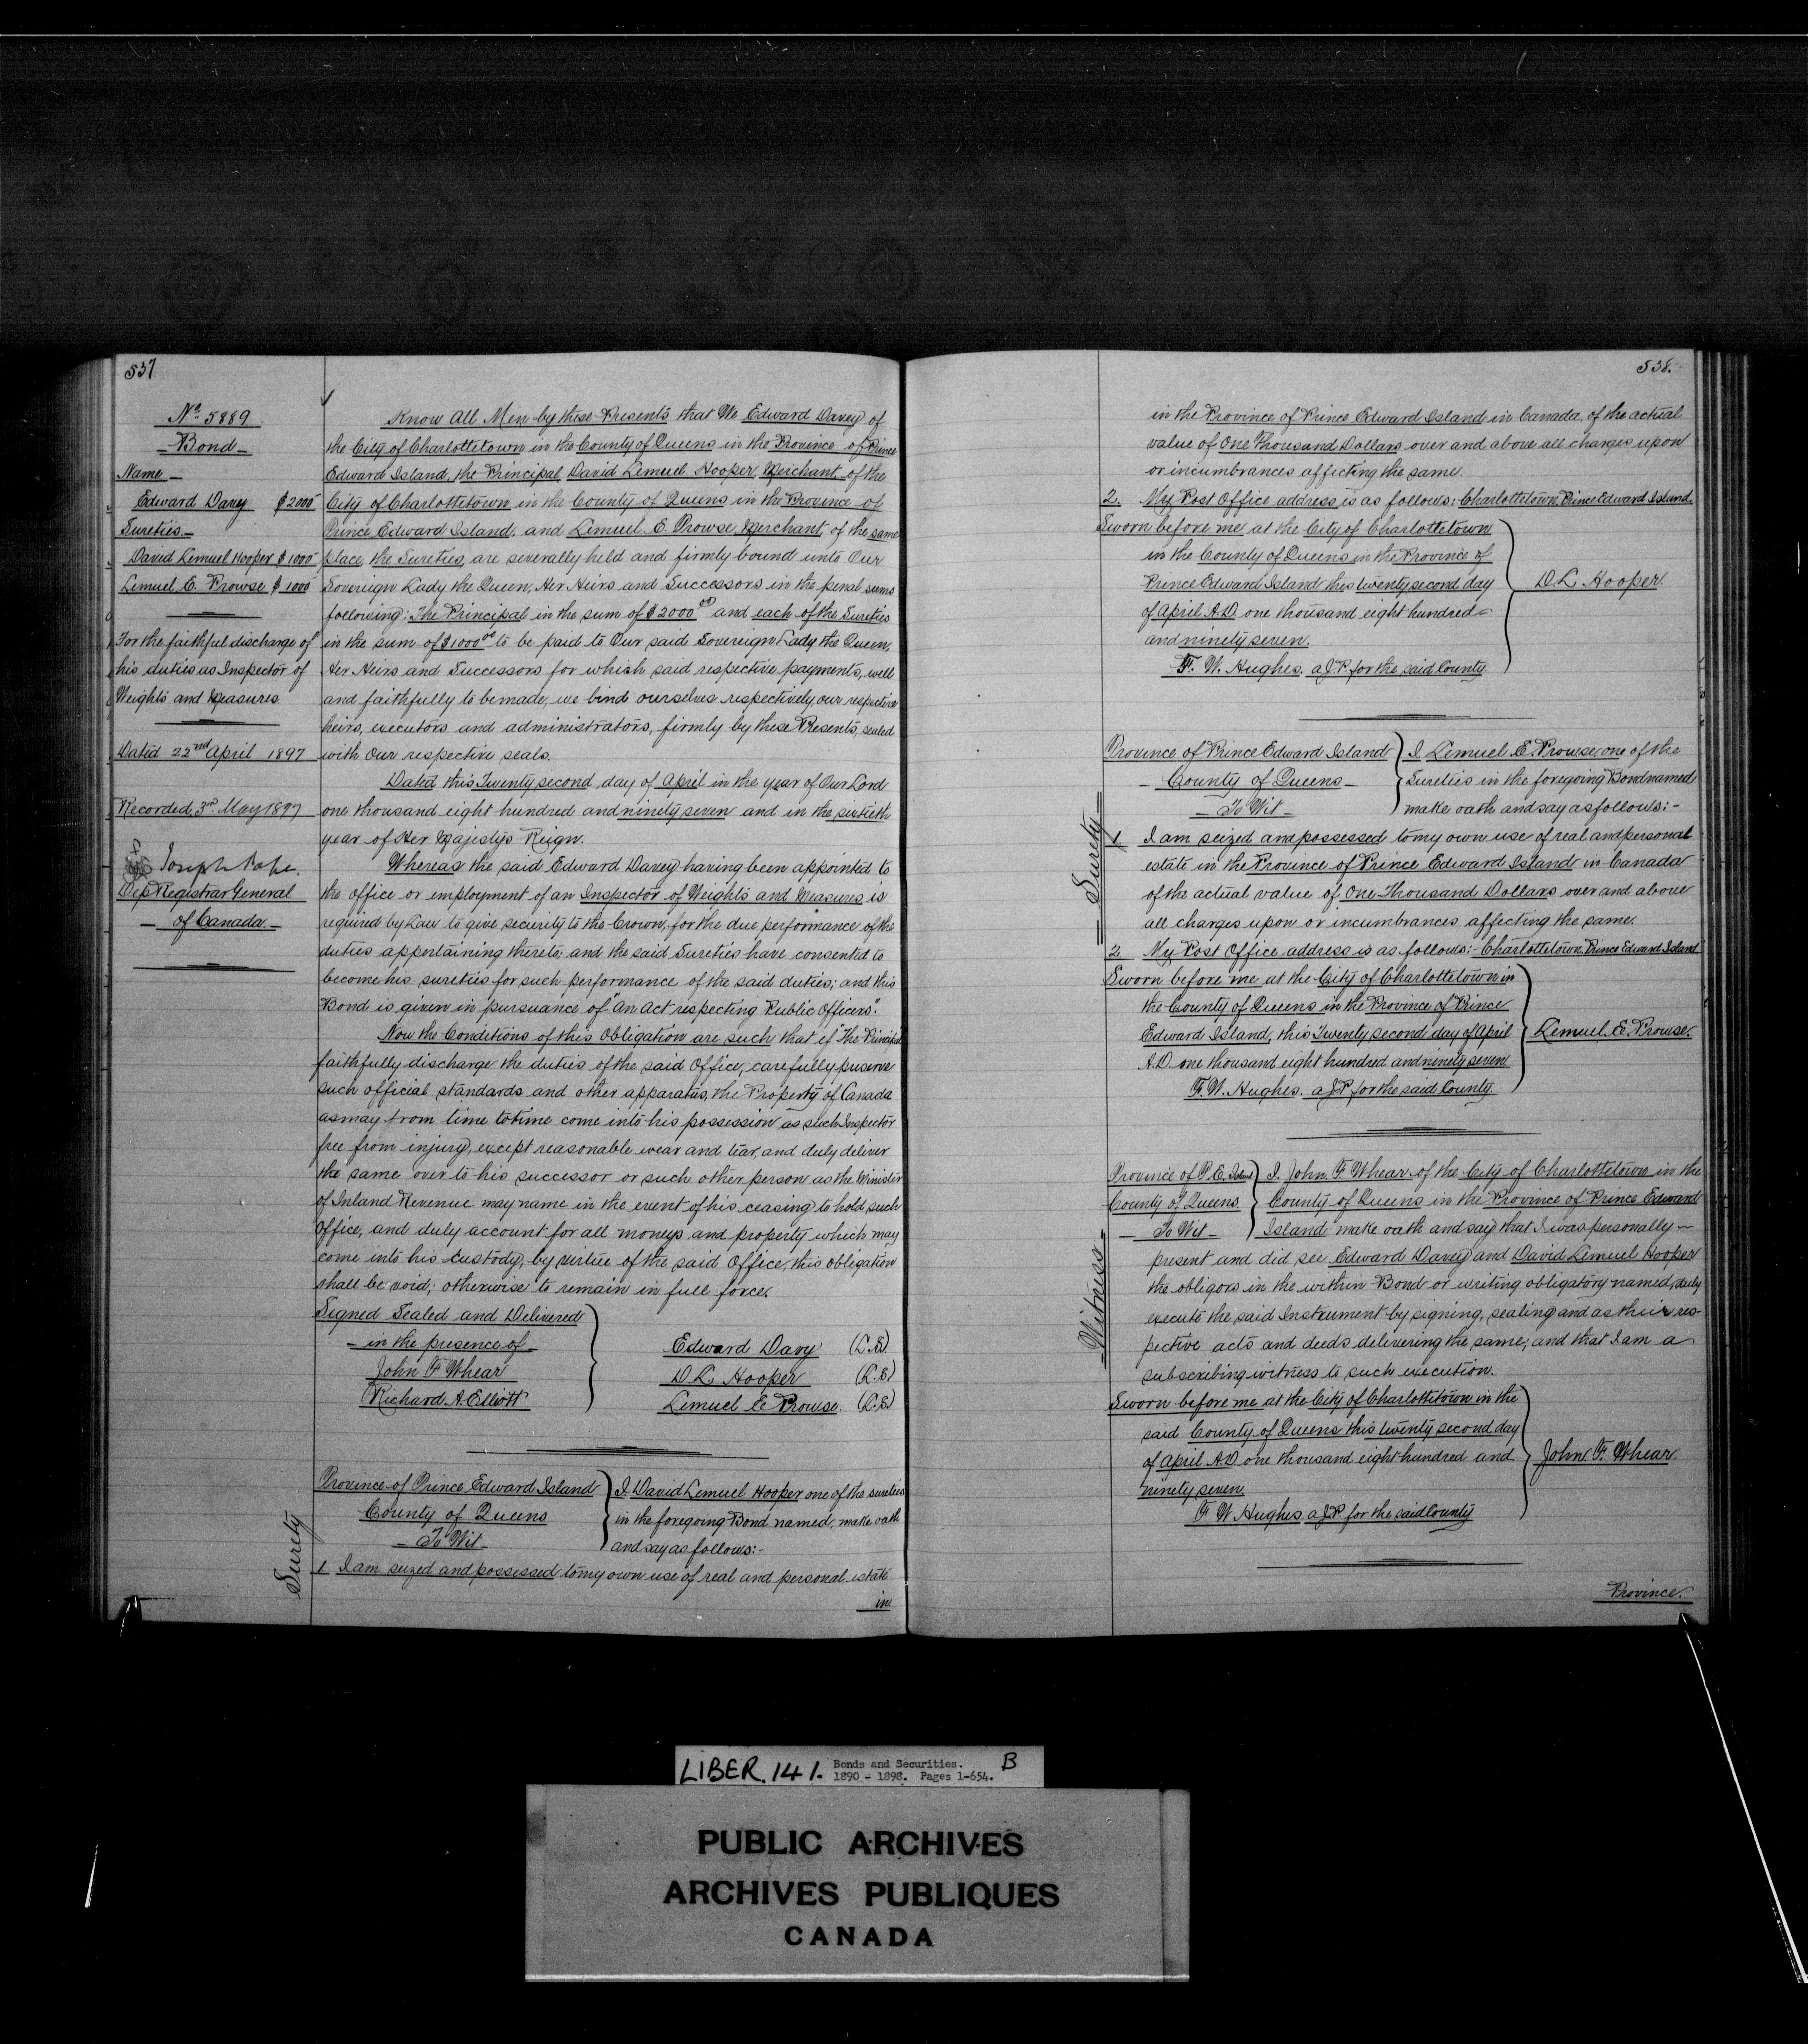 537
No. 5889
Bond
Name
Edward Davey $2000
Sureties
David Lemuel Hooper $1000
Lemuel E. Prowse $1000
For the faithful discharge of
his duties as Inspector of
Weights and Measures.
Dated 22nd April 1897
Recorded, 3rd May 1897
Joseph Pope.
Dep Registrar General
of Canada.
Know All Men by these Presents that We Edward Davey of
the City of Charlottetown in the County of Queens in the Province of Prince
Edward Island, the Principal David Lemuel Hooper, Merchant of the
City of Charlottetown in the County of Queens in the Province of
Prince Edward Island, and Lemuel E. Prowse Merchant, of the same
place, the Sureties, are severally held and firmly bound unto Our
Sovereign Lady the Queen, Her Heirs and Successors in the penal sums
following: The Principal in the sum of $2000 00 and each of the Sureties
in the sum of $1000 00 to be paid to Our said Sovereign Lady the Queen,
Her Heirs and Successors for which said respective payments, well
and faithfully to be made, we bind ourselves respectively, our respective
heirs, executors and administrators, firmly by these Presents, sealed
with Our respective seals.
Dated this Twenty second day of April in the year of Our Lord
one thousand eight hundred and ninety seven and in the sixtieth
year of Her Majestys Reign.
Whereas the said Edward Davey having been appointed to
the office or employment of an Inspector of Weights and Measures is
required by Law to give security to the Crown, for the due performance of the
duties appertaining thereto; and the said Sureties have consented to
become his sureties for such performance of the said duties; and this
Bond is given in pursuance of "An Act respecting Public Officers".
Now the Conditions of this Obligation are such that if "The Principal
faithfully discharge the duties of the said Office, carefully preserve
such official standards and other apparatus, the Property of Canada
as may from time to time come into his possession as such Inspector
free from injury, except reasonable wear and tear, and duly deliver
the same over to his successor or such other person as the Minister
of Inland Revenue may name in the event of his ceasing to hold such
Office, and duly account for all moneys and property which may
come into his custody, by virtue of the said Office, this obligation
shall be void; otherwise to remain in full force.
Signed Sealed and Delivered
in the presence of
John F Whear
Richard A. Elliott
Edward Davy (L.S)
D L Hooper (L.S)
Lemuel E Prowse. (L.S)
Surety
Province of Prince Edward Island
County of Queens
To Wit
I. David Lemuel Hooper one of the sureties
in the foregoing Bond named, make oath
and say as follows:-
1 I am seized and possessed to my own use of real and personal estate
in
538.
in the Province of Prince Edward Island in Canada, of the actual
value of One Thousand Dollars over and above all charges upon
or incumbrances affecting the same.
2. My Post Office address is as follows: Charlottetown, Prince Edward Island.
Sworn before me at the City of Charlottetown
in the County of Queens in the Province of
Prince Edward Island this twenty second day
of April A.D. one thousand eight hundred
and ninety seven.
F. W. Hughes. a J.P. for the said County
D. L. Hooper.
Surety
Province of Prince Edward Island
County of Queens
To Wit
I Lemuel E. Prowse, one of the
Sureties in the foregoing Bond named
make oath and say as follows:-
1 I am seized and possessed to my own use of real and personal
estate in the Province of Prince Edward Island in Canada
of the actual value of One Thousand Dollars over and above
all charges upon or incumbrances affecting the same.
2 My Post Office address is as follows:- Charlottetown, Prince Edward Island
Sworn before me at the City of Charlottetown in
the County of Queens in the Province of Prince
Edward Island, this Twenty second day of April
A.D. one thousand eight hundred and ninety seven
F. W. Hughes. a J.P. for the said County
Lemuel E. Prowse.
Witness
Province of P.E. Island
County of Queens
To Wit
I. John F Whear of the City of Charlottetown in the
County of Queens in the Province of Prince Edward
Island make oath and say that I was personally
present and did see Edward Davey and David Lemuel Hooper
the obligors in the within Bond or writing obligatory named, duly
execute the said Instrument by signing, sealing and as their res-
pective acts and deeds delivering the same; and that I am a
subscribing witness to such execution.
Sworn before me at the City of Charlottetown in the
said County of Queens this twenty second day
of April A.D. one thousand eight hundred and
ninety seven.
F W Hughes. a J.P. for the said County
John F. Whear.
Province.
LIBER. 141. Bonds and Securities. B
1890 - 1898. Pages 1-654.
PUBLIC ARCHIVES
ARCHIVES PUBLIQUES
CANADA